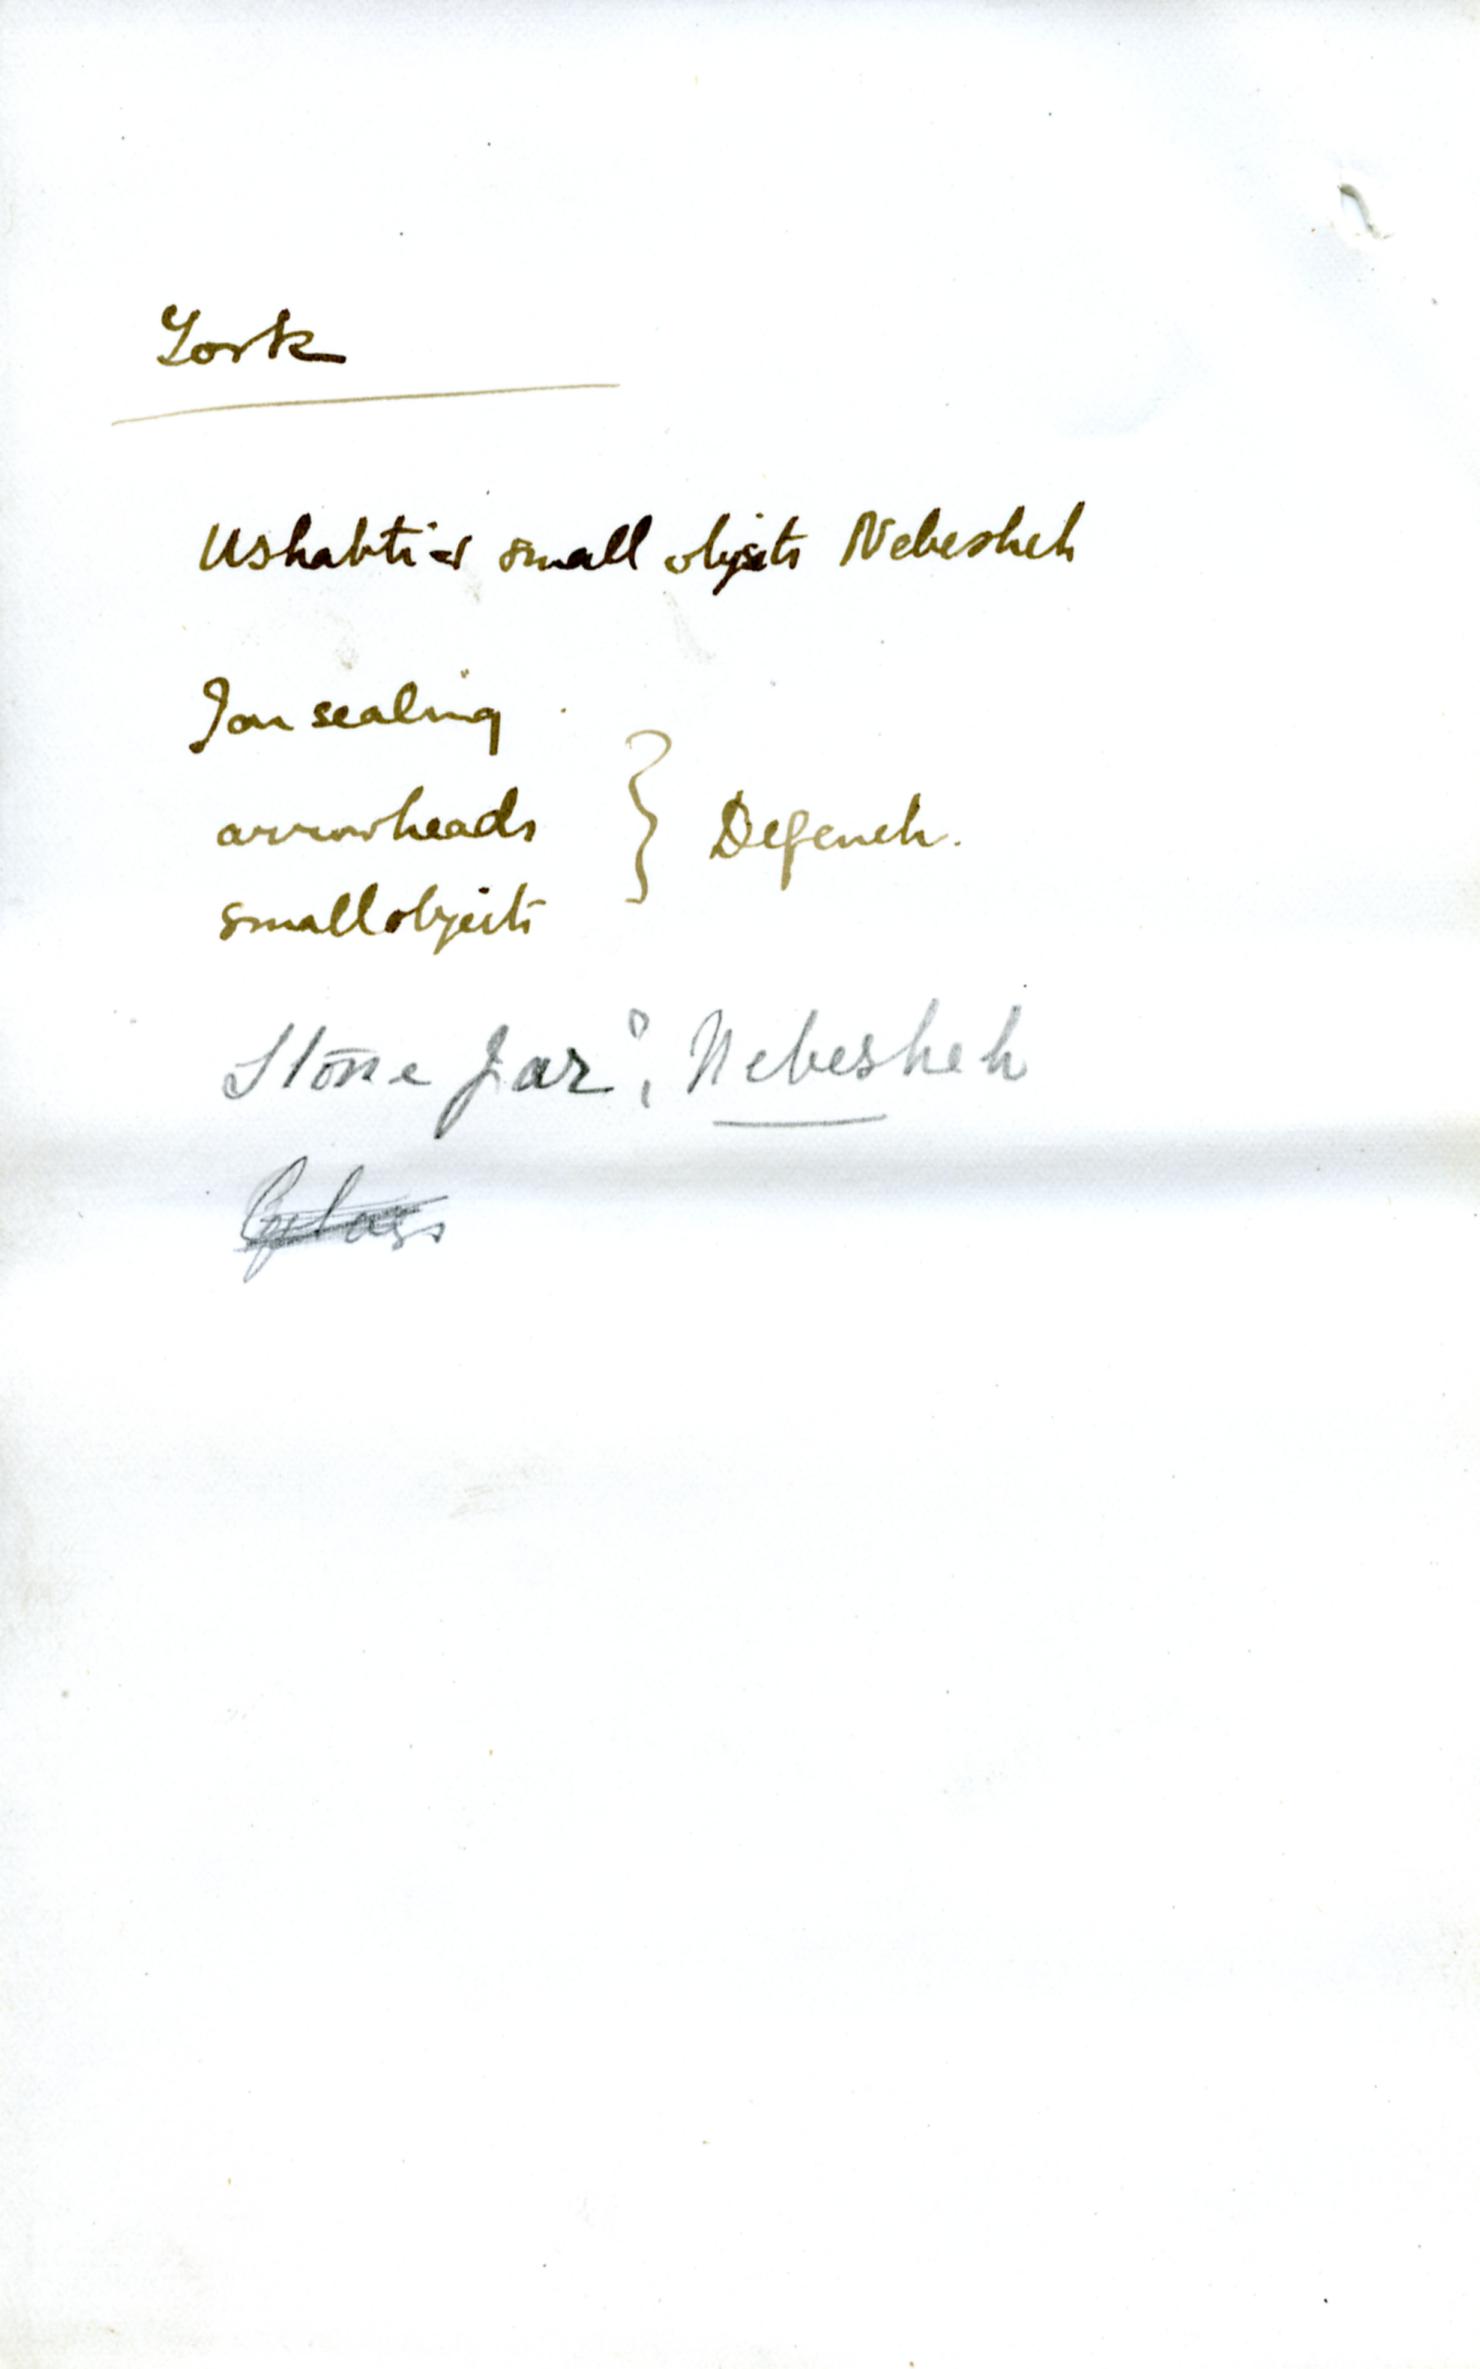 York
Ushabti & small objects Nebesheh
Jar sealing
arrowheads } Defeneh.
small objects
Stone Jar ?, Nebesheh